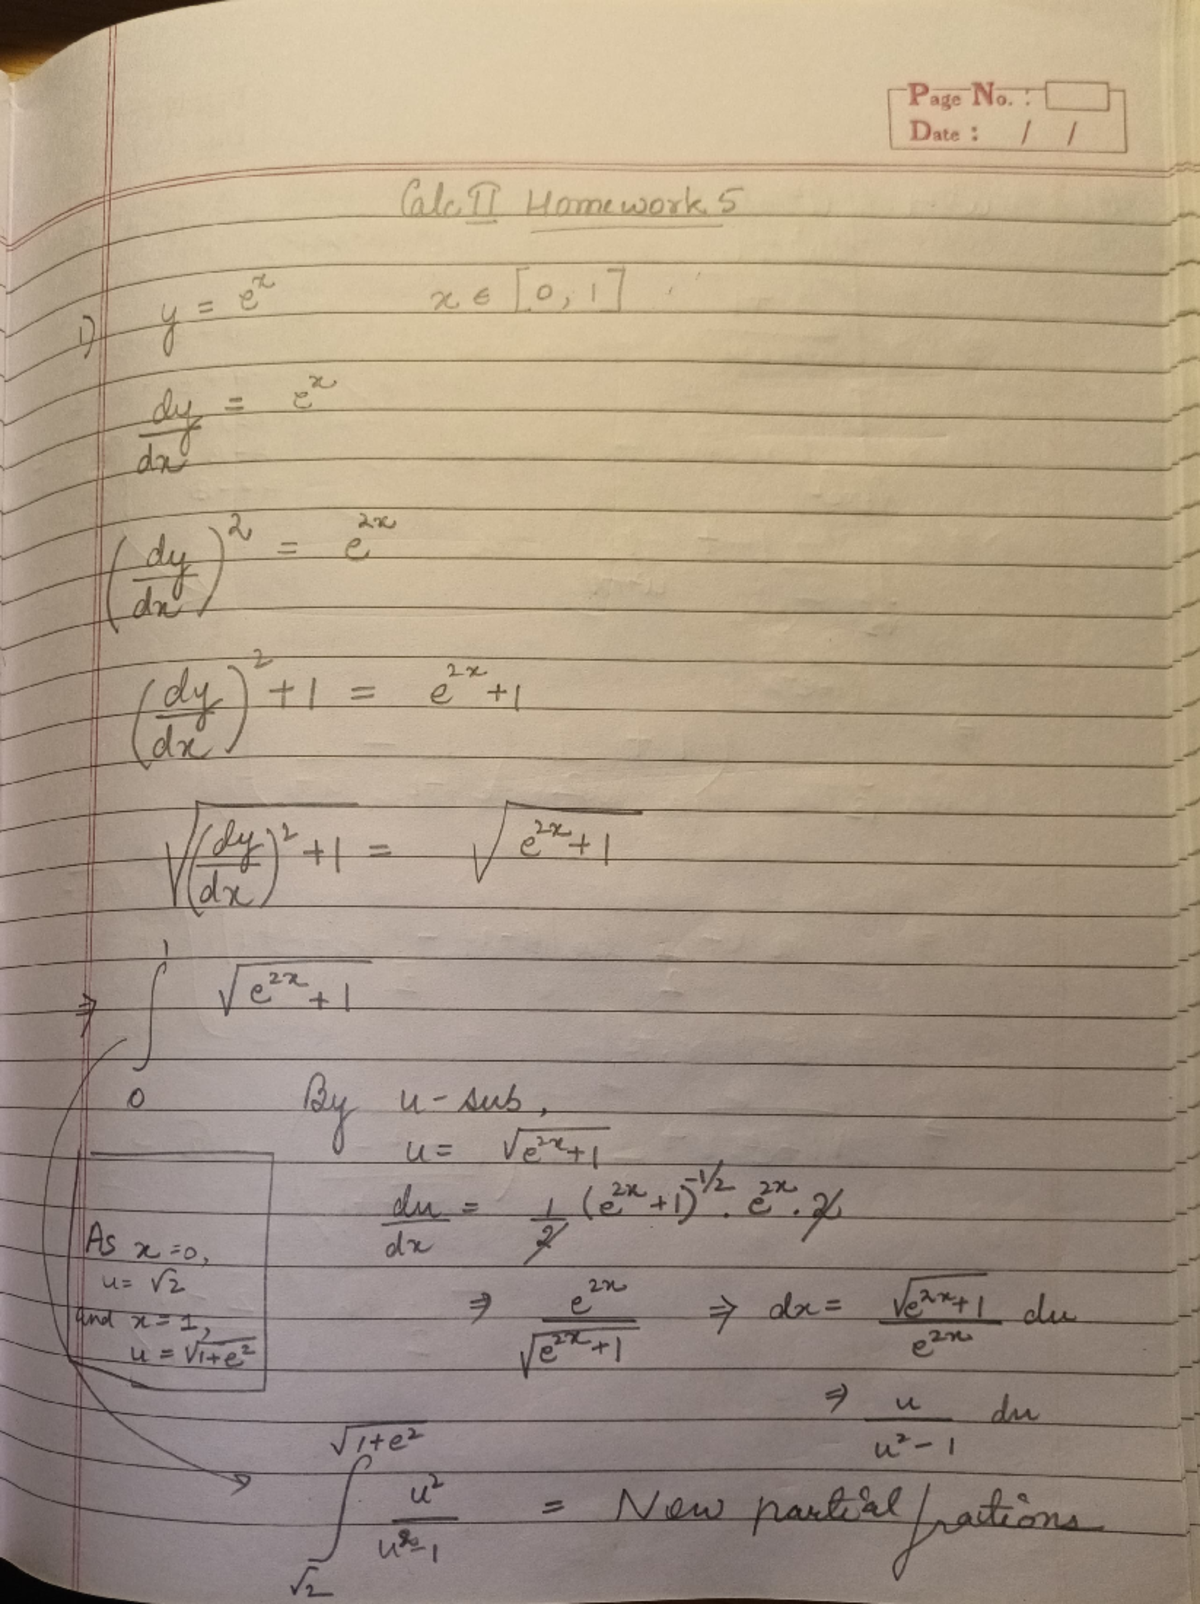 Page No. :
Date : / /
Calc II Homework 5
1) y = e^x x ∈ [0, 1]
dy/dx = e^x
(dy/dx)^2 = e^{2x}
(dy/dx)^2 + 1 = e^{2x} + 1
√((dy/dx)^2 + 1) = √(e^{2x} + 1)
⇒ ∫_0^1 √(e^{2x} + 1)
By u-sub,
u = √(e^{2x} + 1)
du/dx = 1/2 (e^{2x} + 1)^{-1/2} . e^{2x} . 2
As x = 0,
u = √2
and x = 1,
u = √(1+e^2)
⇒ e^{2x}/√(e^{2x} + 1) ⇒ dx = √(e^{2x} + 1)/e^{2x} du
⇒ u/(u^2 - 1) du
∫_{√2}^{√(1+e^2)} u^2/(u^2 - 1) = Now partial fractions